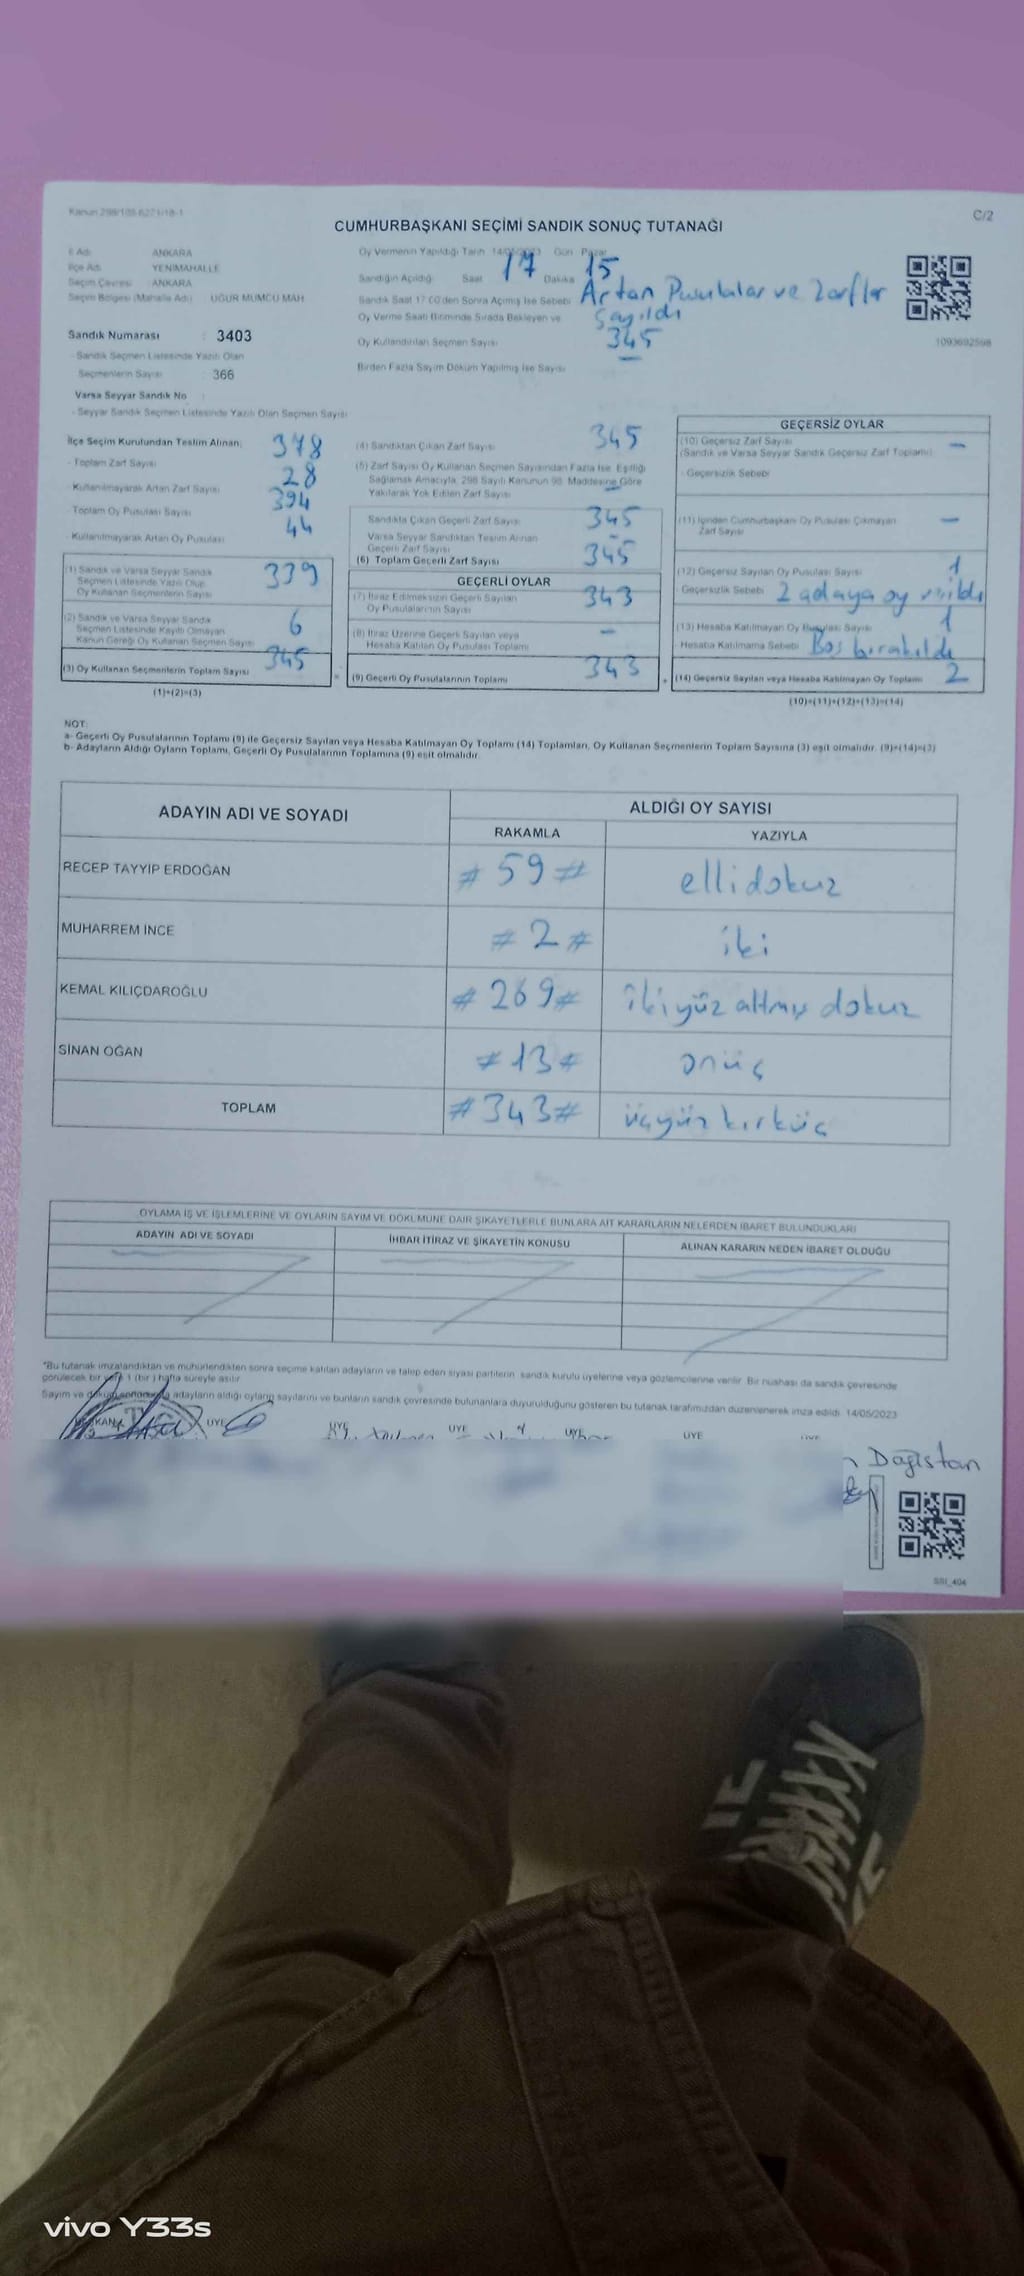 Kanun 298/105 6271/18-1
C/2
CUMHURBAŞKANI SEÇİMİ SANDIK SONUÇ TUTANAĞI
İl Adı: ANKARA
İlçe Adı: YENİMAHALLE
Seçim Çevresi : ANKARA
Seçim Bölgesi (Mahalle Adı) : UĞUR MUMCU MAH.
Sandık Numarası : 3403
- Sandık Seçmen Listesinde Yazılı Olan
Seçmenlerin Sayısı : 366
Varsa Seyyar Sandık No :
- Seyyar Sandık Seçmen Listesinde Yazılı Olan Seçmen Sayısı:
Oy Vermenin Yapıldığı Tarih 14/05/2023 Gün Pazar
Sandığın Açıldığı Saat 17 Dakika 15
Sandık Saat 17:00'den Sonra Açılmış İse Sebebi Artan Pusulalar ve Zarflar
Sayıldı
Oy Verme Saati Bitiminde Sırada Bekleyen ve
Oy Kullandırılan Seçmen Sayısı 345
Birden Fazla Sayım Döküm Yapılmış İse Sayısı —
1093692598
İlçe Seçim Kurulundan Teslim Alınan;
- Toplam Zarf Sayısı 378
- Kullanılmayarak Artan Zarf Sayısı 28
- Toplam Oy Pusulası Sayısı 394
- Kullanılmayarak Artan Oy Pusulası 44
(1) Sandık ve Varsa Seyyar Sandık
Seçmen Listesinde Yazılı Olup
Oy Kullanan Seçmenlerin Sayısı 339
(2) Sandık ve Varsa Seyyar Sandık
Seçmen Listesinde Kayıtlı Olmayan
Kanun Gereği Oy Kullanan Seçmen Sayısı 6
(3) Oy Kullanan Seçmenlerin Toplam Sayısı 345
(1)+(2)=(3)
(4) Sandıktan Çıkan Zarf Sayısı 345
(5) Zarf Sayısı Oy Kullanan Seçmen Sayısından Fazla İse, Eşitliği
Sağlamak Amacıyla, 298 Sayılı Kanunun 98. Maddesine Göre
Yakılarak Yok Edilen Zarf Sayısı —
Sandıkta Çıkan Geçerli Zarf Sayısı 345
Varsa Seyyar Sandıktan Teslim Alınan
Geçerli Zarf Sayısı —
(6) Toplam Geçerli Zarf Sayısı 345
GEÇERLİ OYLAR
(7) İtiraz Edilmeksizin Geçerli Sayılan
Oy Pusulalarının Sayısı 343
(8) İtiraz Üzerine Geçerli Sayılan veya
Hesaba Katılan Oy Pusulası Toplamı —
(9) Geçerli Oy Pusulalarının Toplamı 343
GEÇERSİZ OYLAR
(10) Geçersiz Zarf Sayısı —
(Sandık ve Varsa Seyyar Sandık Geçersiz Zarf Toplamı)
- Geçersizlik Sebebi
(11) İçinden Cumhurbaşkanı Oy Pusulası Çıkmayan
Zarf Sayısı —
(12) Geçersiz Sayılan Oy Pusulası Sayısı 1
- Geçersizlik Sebebi 2 adaya oy verildi
(13) Hesaba Katılmayan Oy Pusulası Sayısı 1
- Hesaba Katılmama Sebebi Boş bırakıldı
(14) Geçersiz Sayılan veya Hesaba Katılmayan Oy Toplamı 2
(10)+(11)+(12)+(13)=(14)
NOT:
a- Geçerli Oy Pusulalarının Toplamı (9) ile Geçersiz Sayılan veya Hesaba Katılmayan Oy Toplamı (14) Toplamları, Oy Kullanan Seçmenlerin Toplam Sayısına (3) eşit olmalıdır. (9)+(14)=(3)
b- Adayların Aldığı Oyların Toplamı, Geçerli Oy Pusulalarının Toplamına (9) eşit olmalıdır.
ADAYIN ADI VE SOYADI ALDIĞI OY SAYISI
RAKAMLA YAZIYLA
RECEP TAYYİP ERDOĞAN # 59 # ellidokuz
MUHARREM İNCE # 2 # iki
KEMAL KILIÇDAROĞLU # 269 # ikiyüz altmış dokuz
SİNAN OĞAN # 13 # onüç
TOPLAM # 343 # üçyüz kırküç
OYLAMA İŞ VE İŞLEMLERİNE VE OYLARIN SAYIM VE DÖKÜMÜNE DAİR ŞİKAYETLERLE BUNLARA AİT KARARLARIN NELERDEN İBARET BULUNDUKLARI
ADAYIN ADI VE SOYADI İHBAR İTİRAZ VE ŞİKAYETİN KONUSU ALINAN KARARIN NEDEN İBARET OLDUĞU
*Bu tutanak imzalandıktan ve mühürlendikten sonra seçime katılan adayların ve talep eden siyasi partilerin sandık kurulu üyelerine veya gözlemcilerine verilir. Bir nüshası da sandık çevresinde
görülecek bir yere 1 (bir) hafta süreyle asılır.
Sayım ve döküm sonucunda adayların aldığı oyların sayılarını ve bunların sandık çevresinde bulunanlara duyurulduğunu gösteren bu tutanak tarafımızdan düzenlenerek imza edildi. 14/05/2023
BAŞKAN ÜYE ÜYE ÜYE ÜYE ÜYE ÜYE
Dağıstan
SSI_404
vivo Y33s